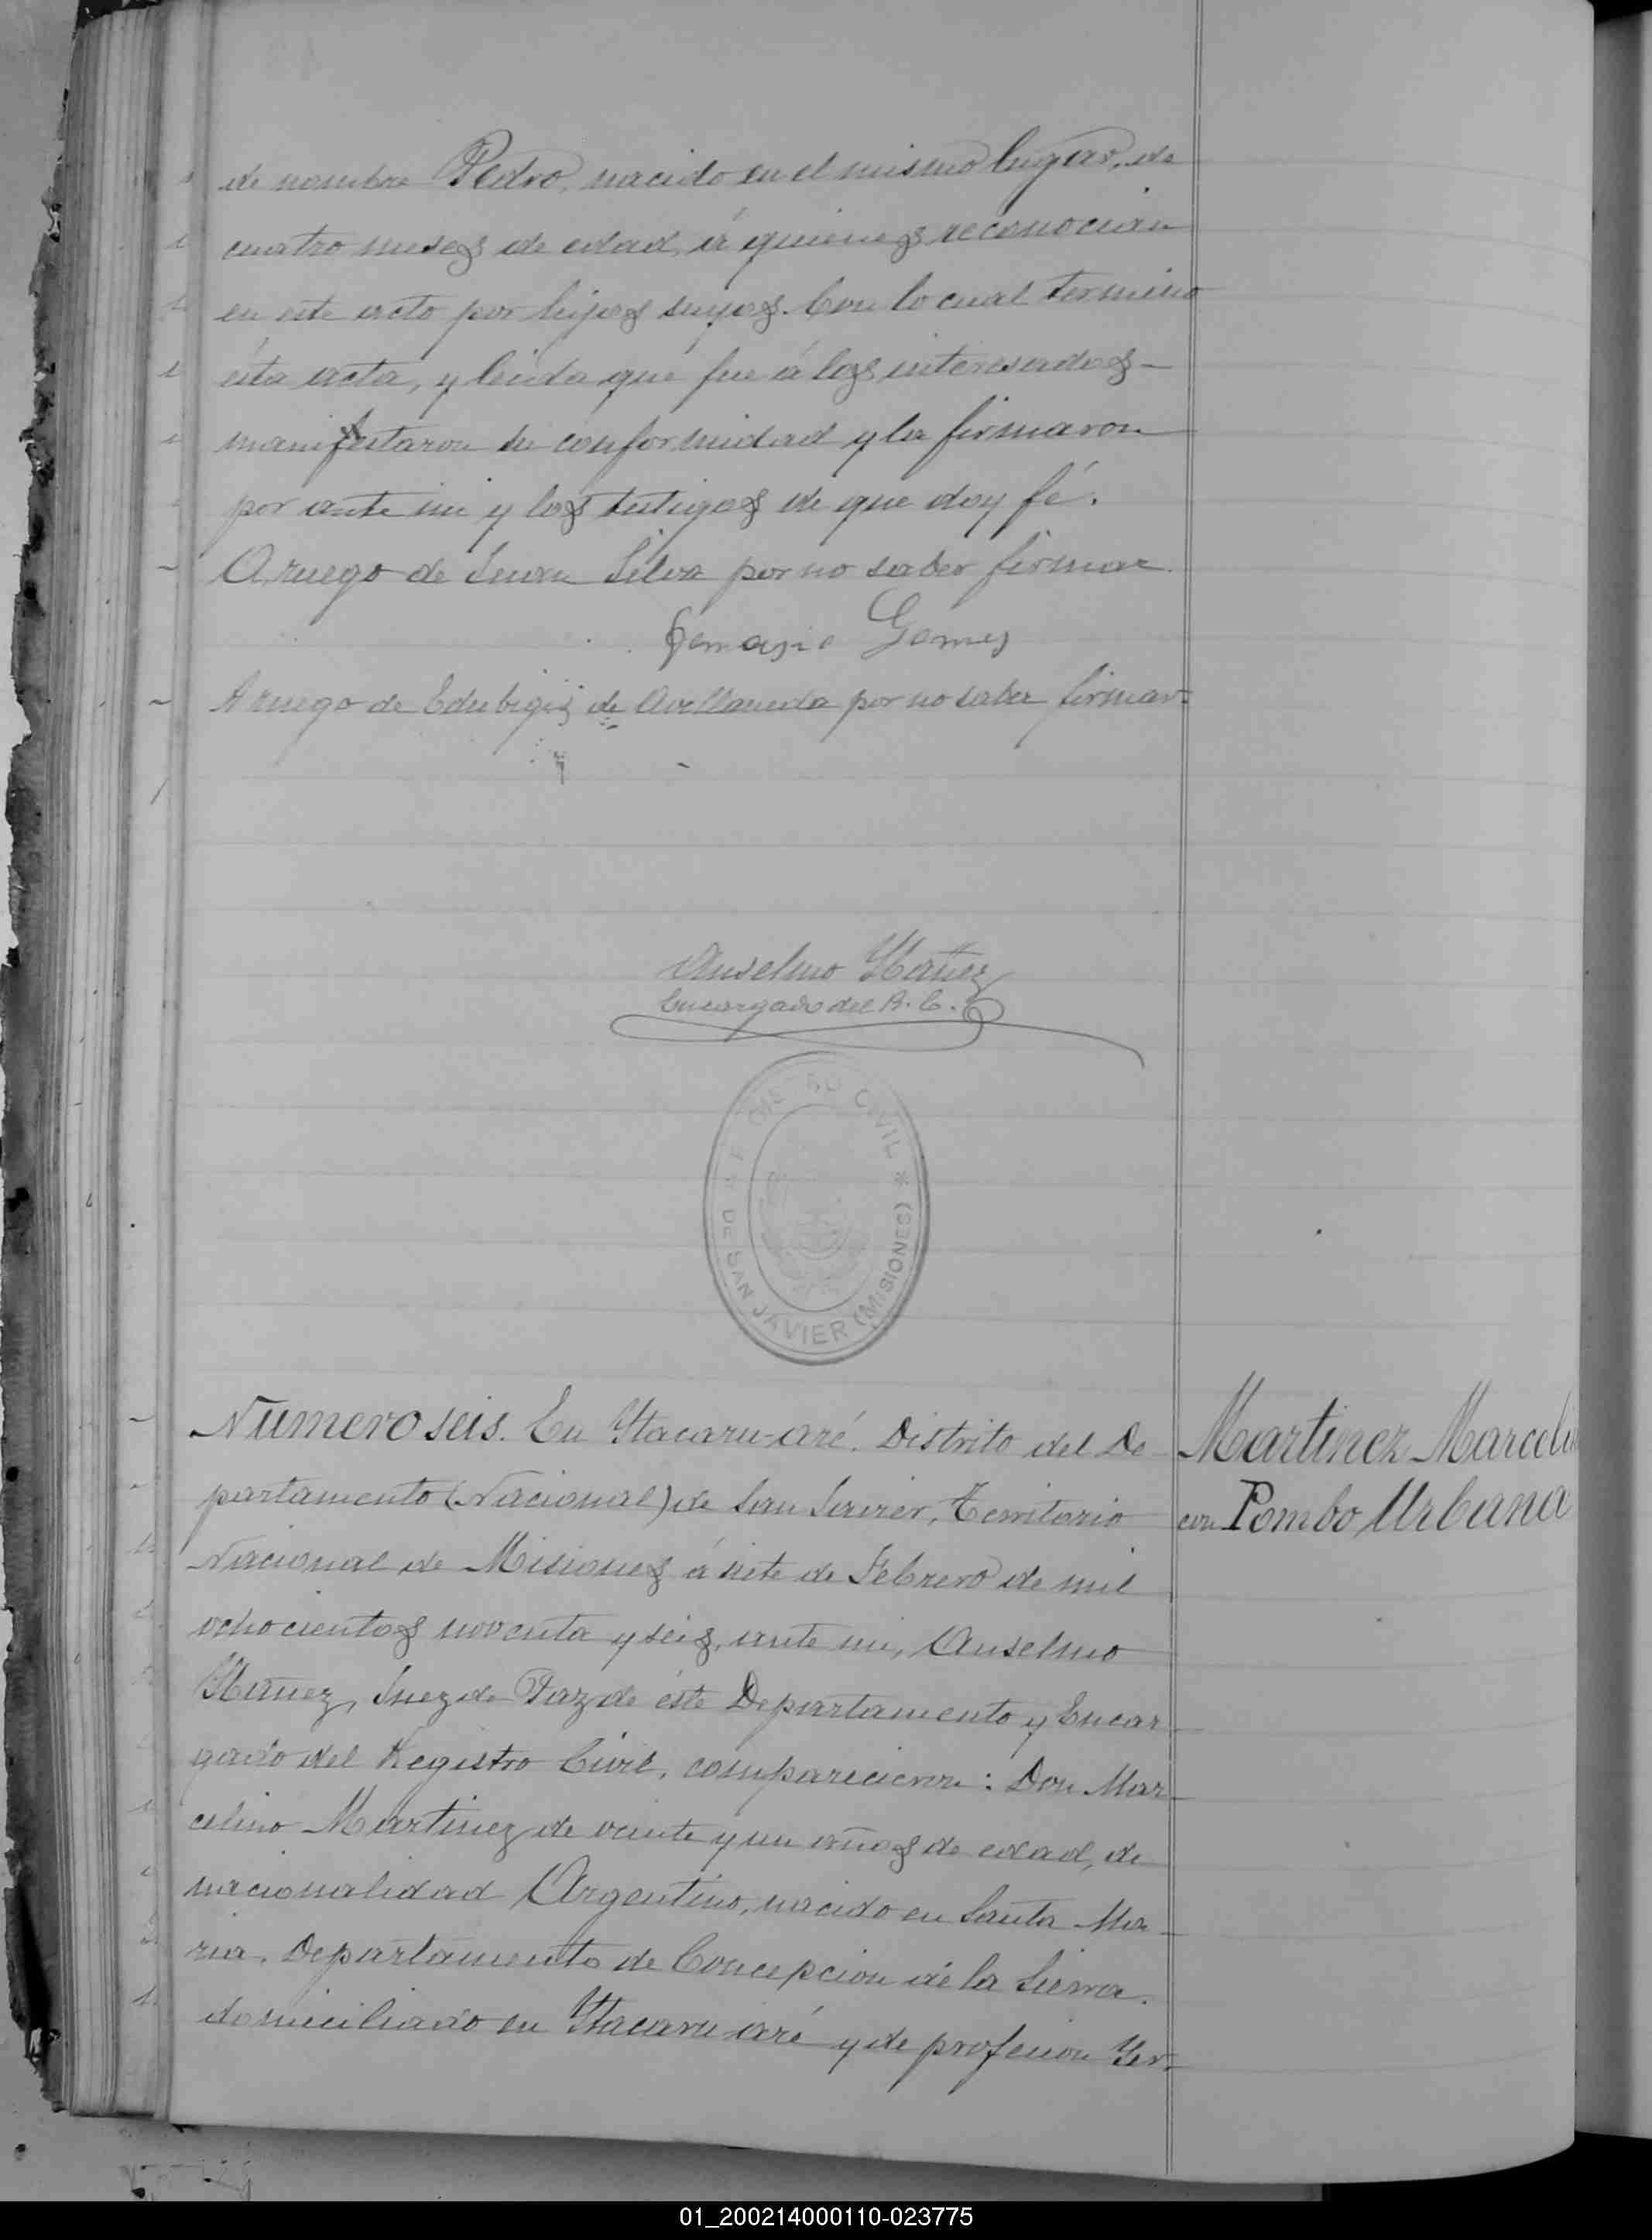 de nombre Pedro, nacido en el mismo lugar, de
cuatro meses de edad, á quienes reconocian
en este acto por hijos suyos. Con lo cual termino
ésta acta, y leida que fue á los interesados—
manifestaron su conformidad y la firmaron
por ante mi y los testigos de que doy fé.
A ruego de Juan Silva por no saber firmar.
Gomes
A ruego de Edubigis de Avellaneda por no saber firmar.
Anselmo Ybañez
Encargado del R. C.
CIVIL * DE SAN JAVIER (MISIONES)
Numero seis. En Ytacaru-aré. Distrito del De
partamento (Nacional) de San Javier, Territorio
Nacional de Misiones á siete de Febrero de mil
ochocientos noventa y seis, ante mi, Anselmo
Ybañez, Juez de Paz de éste Departamento y Encar
gado del Registro Civil, comparecieron: Don Mar
celino Martinez de veinte y un años de edad, de
nacionalidad Argentino, nacido en Santa Ma
ria. Departamento de Concepcion de la Sierra.
domiciliado en Ytacaru-aré y de profesion Yer-
Martinez Marceli
con Pombo Urbana
01_200214000110-023775